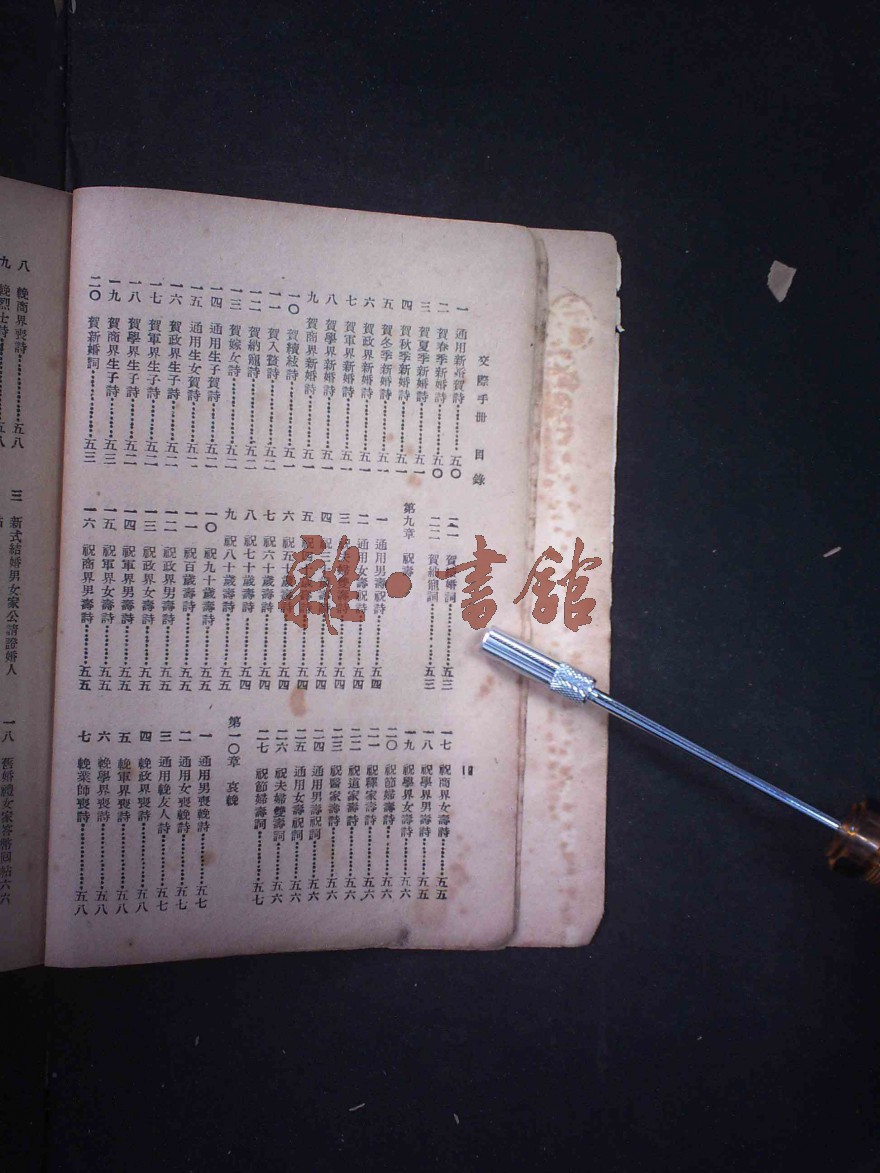 交際手冊 目錄
一 通用新婚賀詩…………五〇
二 賀春季新婚詩…………五〇
三 賀夏季新婚詩…………五一
四 賀秋季新婚詩…………五一
五 賀冬季新婚詩…………五一
六 賀政界新婚詩…………五一
七 賀軍界新婚詩…………五一
八 賀學界新婚詩…………五一
九 賀商界新婚詩…………五一
一〇 賀續絃詩…………五一
一一 賀入贅詩…………五二
一二 賀納寵詩…………五二
一三 賀嫁女詩…………五二
一四 通用生子賀詩…………五二
一五 通用生女賀詩…………五二
一六 賀政界生子詩…………五二
一七 賀軍界生子詩…………五二
一八 賀學界生子詩…………五二
一九 賀商界生子詩…………五三
二〇 賀新婚詞…………五三
二一 賀婚詞…………五三
二二 賀納寵詞…………五三
第九章 祝壽
一 通用男壽祝詩…………五四
二 通用女壽祝詩…………五四
三 雙壽詩…………五四
四 祝三壽詩…………五四
五 祝四壽詩…………五四
六 祝五十歲壽詩…………五四
七 祝六十歲壽詩…………五四
八 祝七十歲壽詩…………五四
九 祝八十歲壽詩…………五五
一〇 祝九十歲壽詩…………五五
一一 祝百歲壽詩…………五五
一二 祝政界男壽詩…………五五
一三 祝政界女壽詩…………五五
一四 祝軍界男壽詩…………五五
一五 祝軍界女壽詩…………五五
一六 祝商界男壽詩…………五五
一七 祝商界女壽詩…………五五
一八 祝學界男壽詩…………五五
一九 祝學界女壽詩…………五六
二〇 祝節婦壽詩…………五六
二一 祝釋家壽詩…………五六
二二 祝道家壽詩…………五六
二三 祝醫家壽詩…………五六
二四 通用男壽祝詞…………五六
二五 通用女壽祝詞…………五六
二六 祝夫婦雙壽詞…………五六
二七 祝節婦壽詞…………五七
第一〇章 哀輓
一 通用男喪輓詩…………五七
二 通用女喪輓詩…………五七
三 通用輓友人詩…………五七
四 輓政界喪詩…………五八
五 輓軍界喪詩…………五八
六 輓學界喪詩…………五八
七 輓業師喪詩…………五八
八 輓商界喪詩…………五八
九 輓烈士詩…………五八
三 新式結婚男女家公請證婚人
一八 舊婚禮女家答幣回帖六六
龍·書館